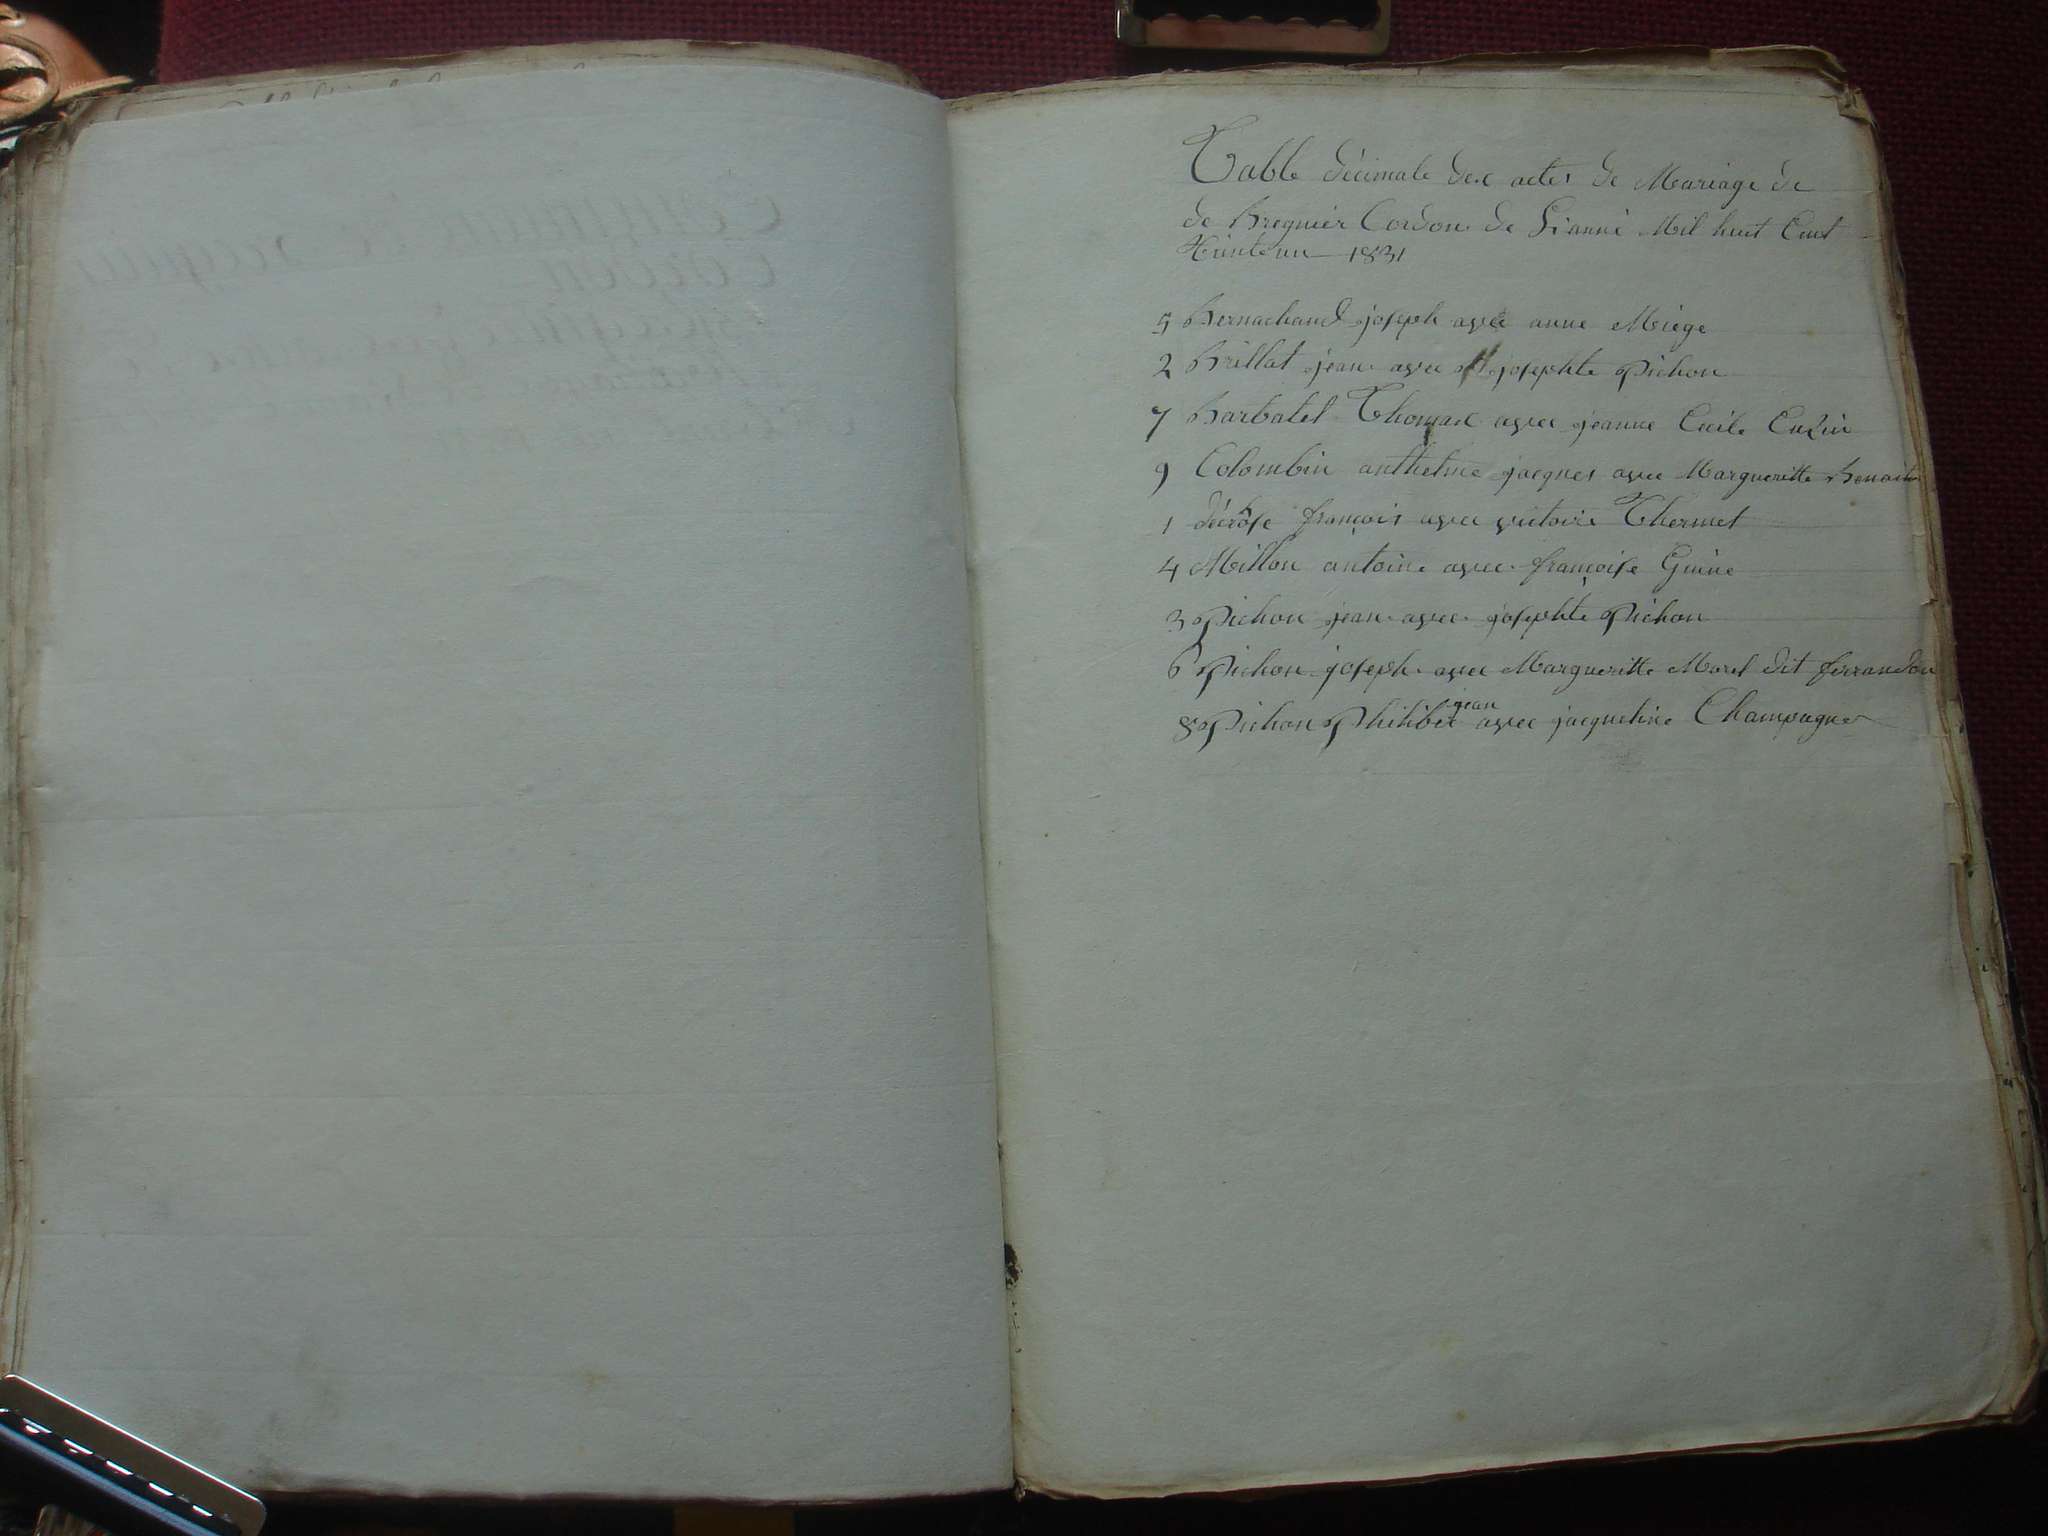 Table décimale des actes de Mariage de
de Bregnier Cordon de L'année Mil huit Cent
trente un 1831
5 Bernachand joseph avec anne Miège
2 Brillat jean avec josephte Pichon
7 Barbatel Thomas avec jeanne Cécile Cuzin
9 Colombin anthelme jacques avec Margueritte Benoit
1 décrôse françois avec victoire Thermet
4 Millon antoine avec françoise Guine
3 Pichon jean avec josephte Pichon
6 Pichon joseph avec Margueritte Morel dit ferrandon
8 Pichon Philibert jean avec jacqueline Champagne